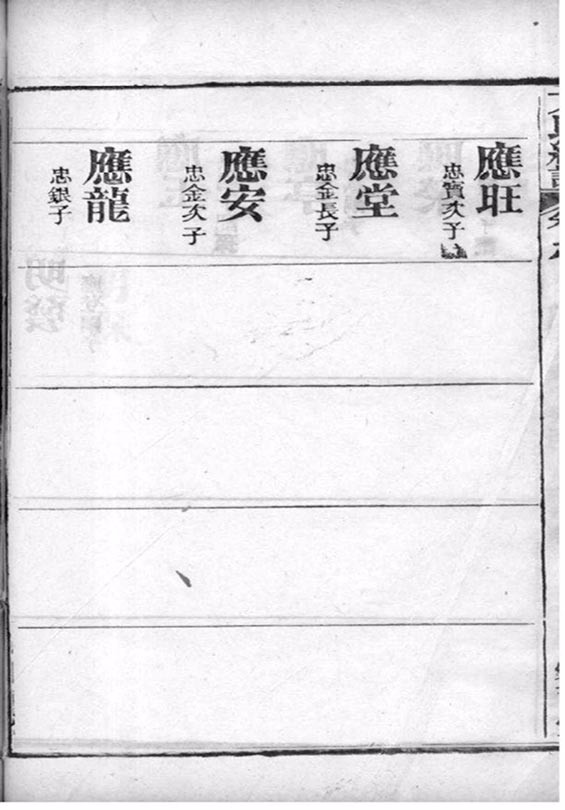 應旺
忠寶次子
應堂
忠金長子
應安
忠金次子
應龍
忠銀子